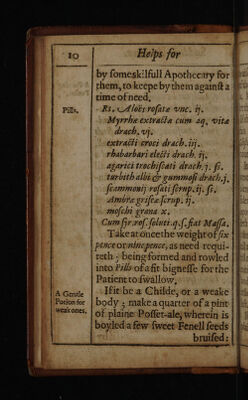 10 Helps for
by some skilfull Apothecary for
them, to keepe by them against a
time of need.
Pills.
Rx. Aloës rosatæ vnc. ij.
Myrrhæ extractæ cum aq. vitæ
drach. vj.
extracti croci drach. iij.
rhabarbari electi drach. ij.
agarici trochiscati drach. j. ß.
turbith albi & gummosi drach. j.
scammonij rosati scrup. ij. ß.
Ambræ griseæ scrup. ij.
moschi grana x.
Cum syr. ros. soluti. q. s. fiat Massa.
Take at once the weight of six
pence or nine pence, as need requi-
reth; being formed and rowled
into Pills of a fit bignesse for the
Patient to swallow.
A Gentle
Potion for
weak ones.
If it be a Childe, or a weake
body; make a quarter of a pint
of plaine Posset-ale, wherein is
boyled a few sweet Fenell seeds
bruised: